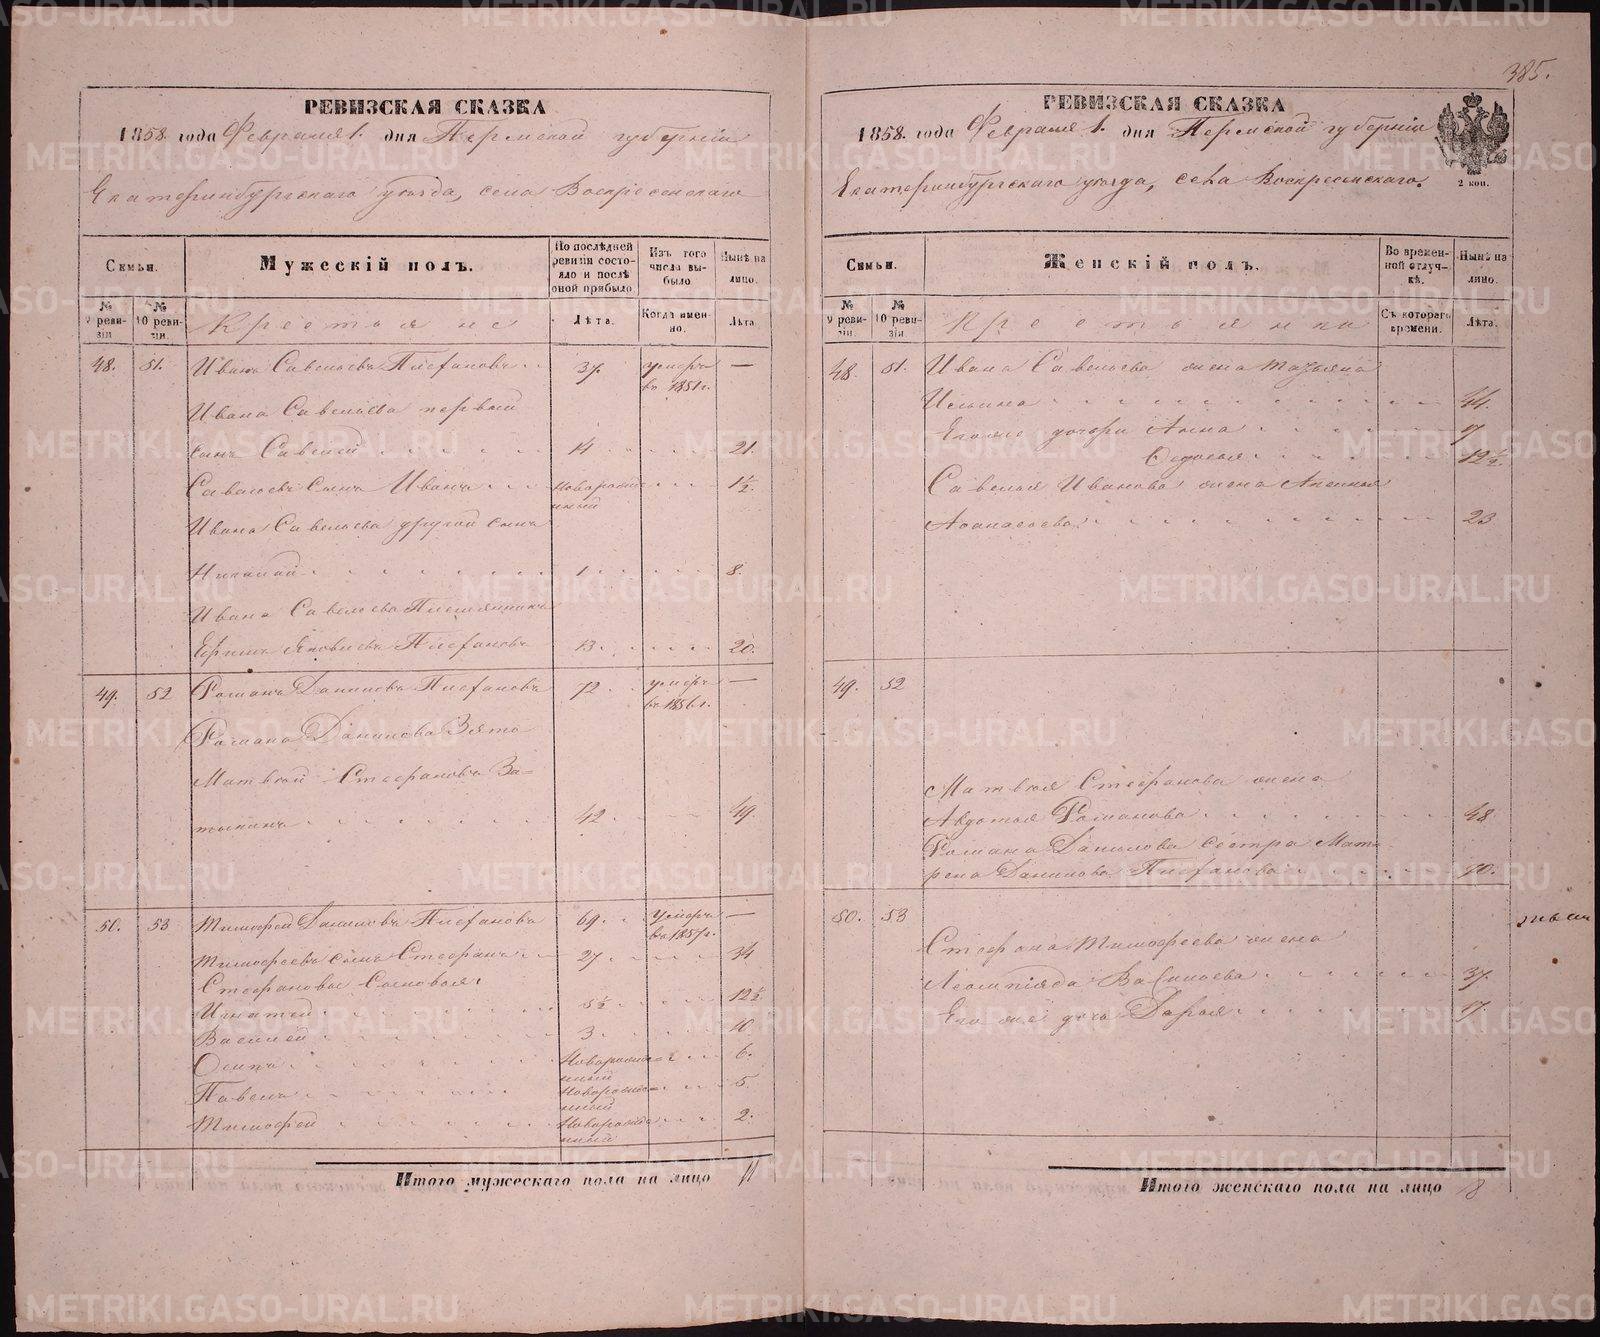 385.
РЕВИЗСКАЯ СКАЗКА
1858 года Февраля 1. дня Пермской губерніи
Екатеринбургскаго уѣзда, села Воскресенскаго
Семьи.
Мужескій полъ.
По послѣдней ревизіи состояло и послѣ оной прибыло.
Изъ того числа выбыло
Нынѣ на лицо.
№ 9 ревизіи
№ 10 ревизіи.
Крестьяне
Лѣта.
Когда именно.
Лѣта
48. 51. Иванъ Савельевъ 37. умеръ въ 1851 г. —
Ивана Савельева первый
сынъ Савелій 14 21.
Савельевъ сынъ Иванъ новорожденный 1½.
Ивана Савельева другой сынъ
Николай 1 8.
Ивана Савельева племянникъ
Ефимъ Яковлевъ 13. 20.
49. 52 Романъ Даниловъ 72. умеръ въ 1856 г. —
Романа Данилова Зять
Матвѣй Стефановъ За-
42. 49.
50. 53 Тимофей Даниловъ 69. умеръ въ 1857 г. —
Тимофеевъ сынъ Стефанъ 27. 34
Стефановы сыновья:
Игнатій 5½ 12½
Василей 3. 10
Осипъ Новорожденный 6.
Павелъ Новорожденный 5.
Тимофей Новорожденный 2.
Итого мужескаго пола на лицо 11
РЕВИЗСКАЯ СКАЗКА
1858 года Февраля 1. дня Пермской губерніи
2 коп.
Екатеринбургскаго уѣзда, села Воскресенскаго.
Семьи.
Женскій полъ.
Во временной отлучкѣ.
Нынѣ на лицо.
№ 9 ревизіи
№ 10 ревизіи
Крестьянки
Съ котораго времени.
Лѣта.
48. 51. Ивана Савельева жена Татьяна
Ильина 44.
Его же дочери Анна 17
Федосья 12½.
Савелья Иванова жена
Афанасьева 23
49. 52
Матвѣя Стефанова жена
Авдотья Романова 48
Романа Данилова сестра Мат-
рена Данилова 70.
50. 53
Стефана Тимофеева жена
Васильева 37.
Его же дочь Дарья 17.
Итого женскаго пола на лицо 8
METRIKI.GASO-URAL.RU